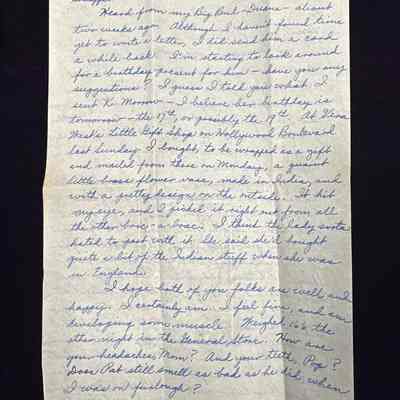 Heard from my Big Bud - Duane - about
two weeks ago. Although I haven't found time
yet to write a letter, I did send him a card
a while back. I'm starting to look around
for a birthday present for him - have you any
suggestions? I guess I told you what I
sent Ki Monow - I believe her birthday is
tomorrow - the 17th, or possibly the 19th. At
Meske's Little Gift Shop on Hollywood Boulevard
last Sunday I bought, to be wrapped as a gift
and mailed from there on Monday, a quaint
little brass flower vase, made in India, and
with a pretty design on the outside. It hit
my eye, and I picked it right out from all
the other bric-a-brac. I think the lady sorta
hated to part with it. She said she'd bought
quite a bit of the Indian stuff when she was
in England.
I hope both of you folks are well and
happy. I certainly am. I feel fine, and am
developing some muscle. Weighed 166 the
other night in the General Store. How are
your headaches, Mom? And your teeth, Pop?
Does Pat still smell as bad as he did when
I was on furlough?